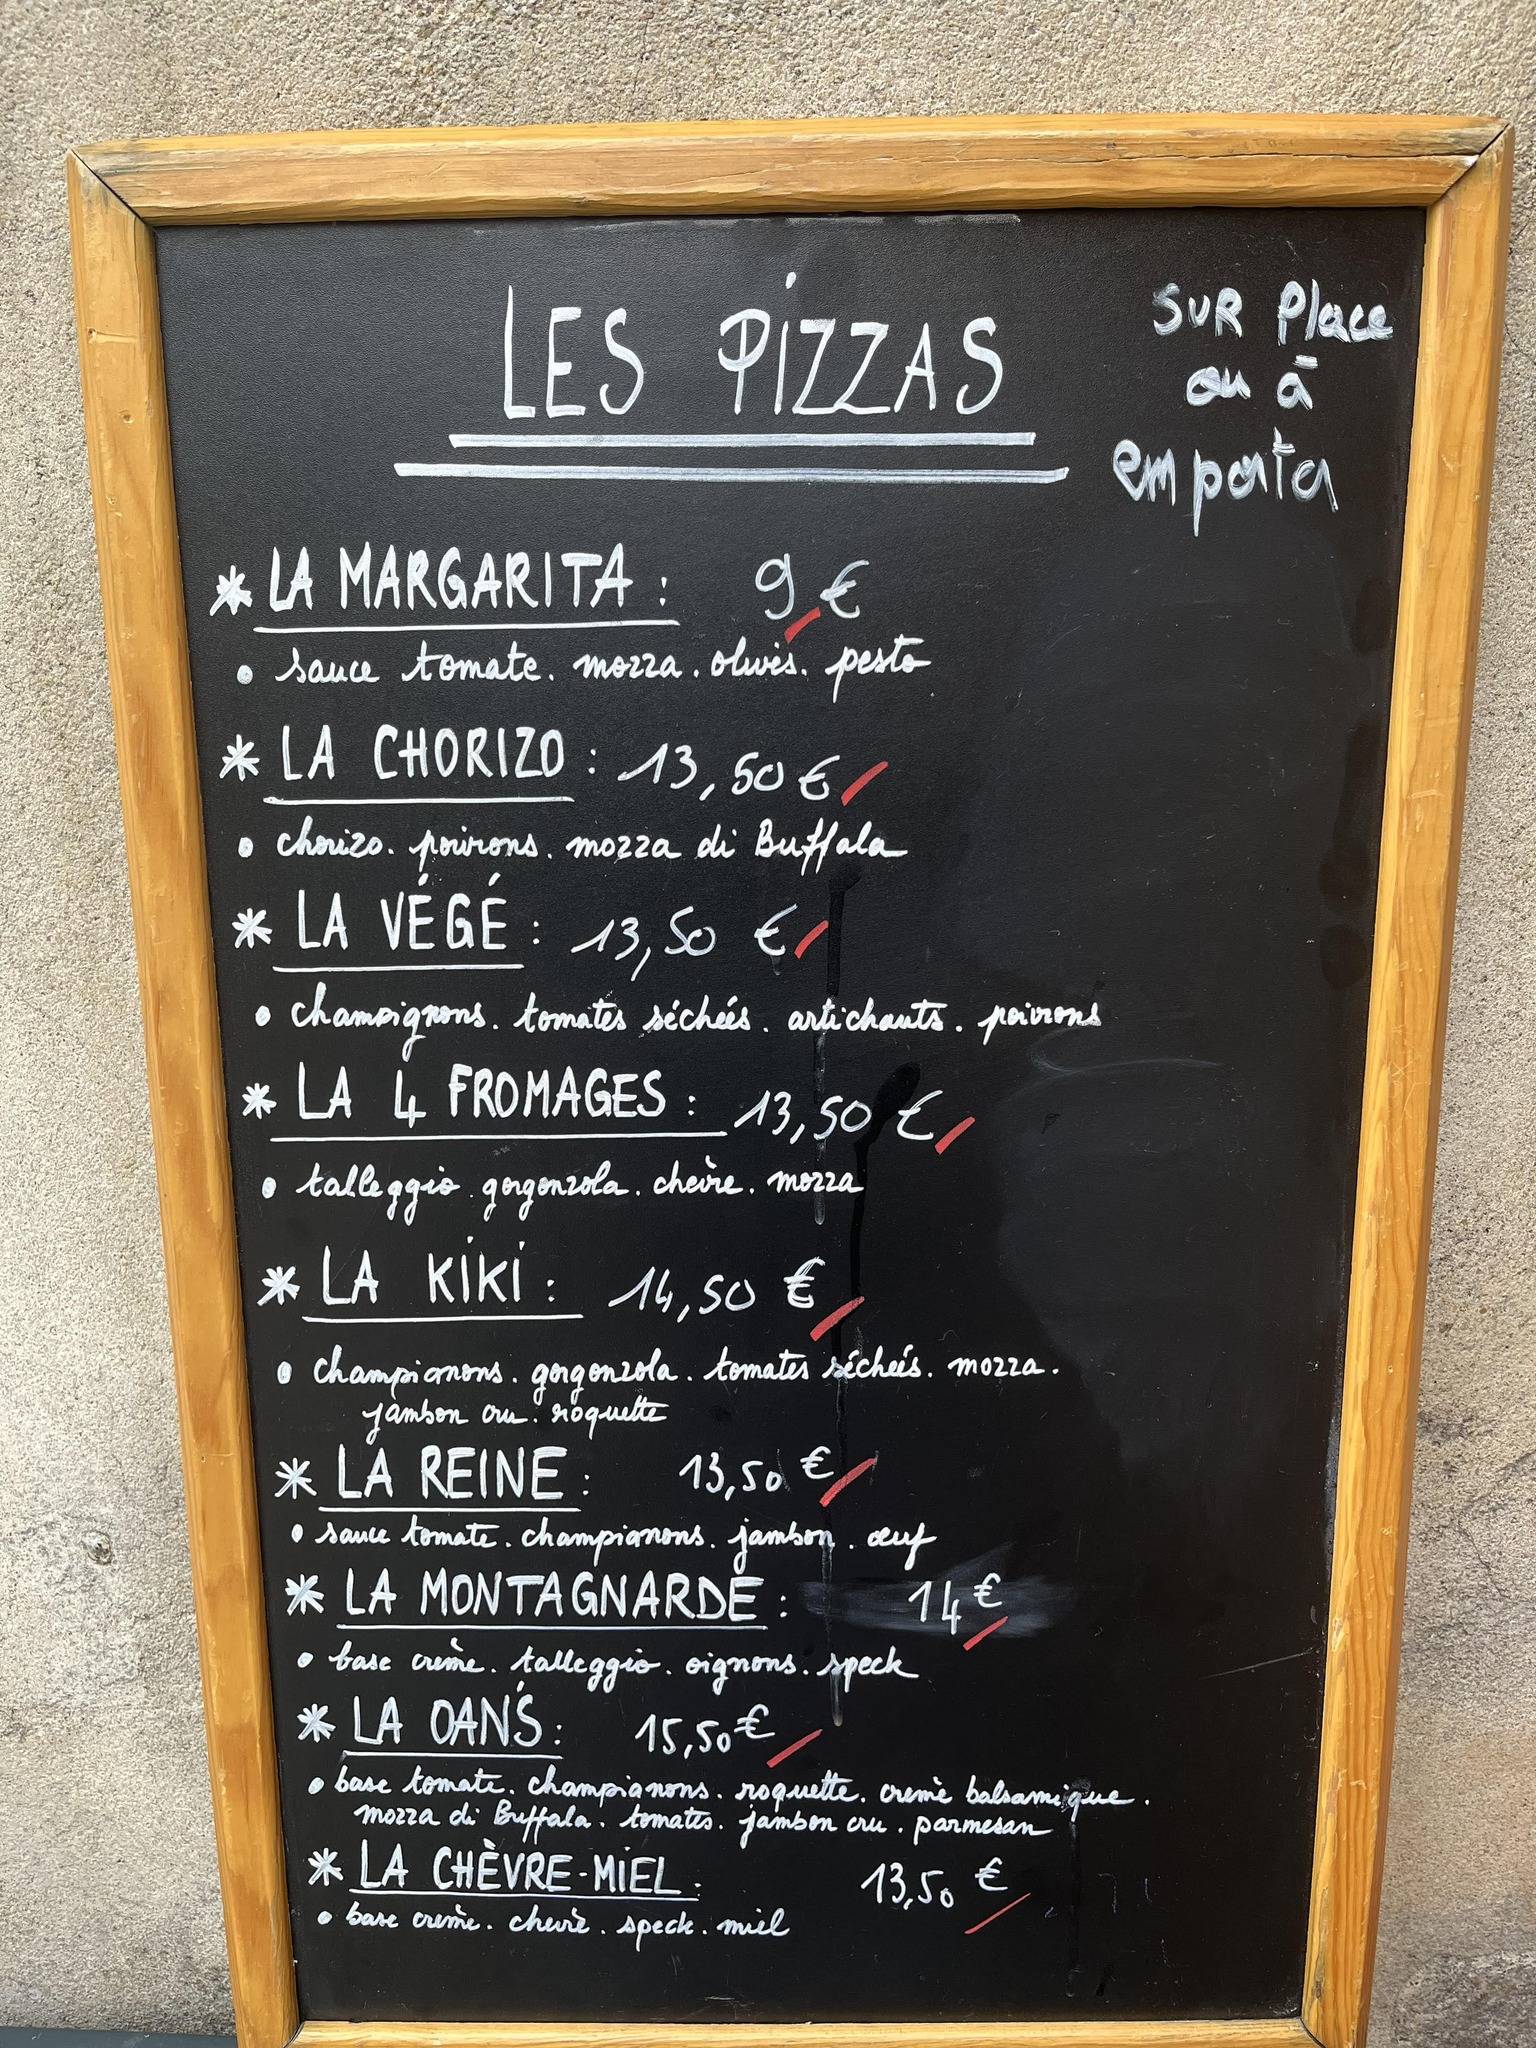 LES PIZZAS
SUR Place
ou à
emporter
* LA MARGARITA : 9 €
• sauce tomate. mozza. olives. pesto
* LA CHORIZO : 13,50 €
• chorizo. poivrons. mozza di Buffala
* LA VÉGÉ : 13,50 €
• champignons. tomates séchées. artichauts. poivrons
* LA 4 FROMAGES : 13,50 €
• talleggio. gorgonzola. chèvre. mozza
* LA KIKI : 14,50 €
• champignons. gorgonzola. tomates séchées. mozza.
jambon cru. roquette
* LA REINE : 13,50 €
• sauce tomate. champignons. jambon. œuf
* LA MONTAGNARDE : 14 €
• base crème. talleggio. oignons. speck
* LA DAN'S : 15,50 €
• base tomate. champignons. roquette. crème balsamique.
mozza di Buffala. tomates. jambon cru. parmesan
* LA CHÈVRE-MIEL : 13,50 €
• base crème. chèvre. speck. miel